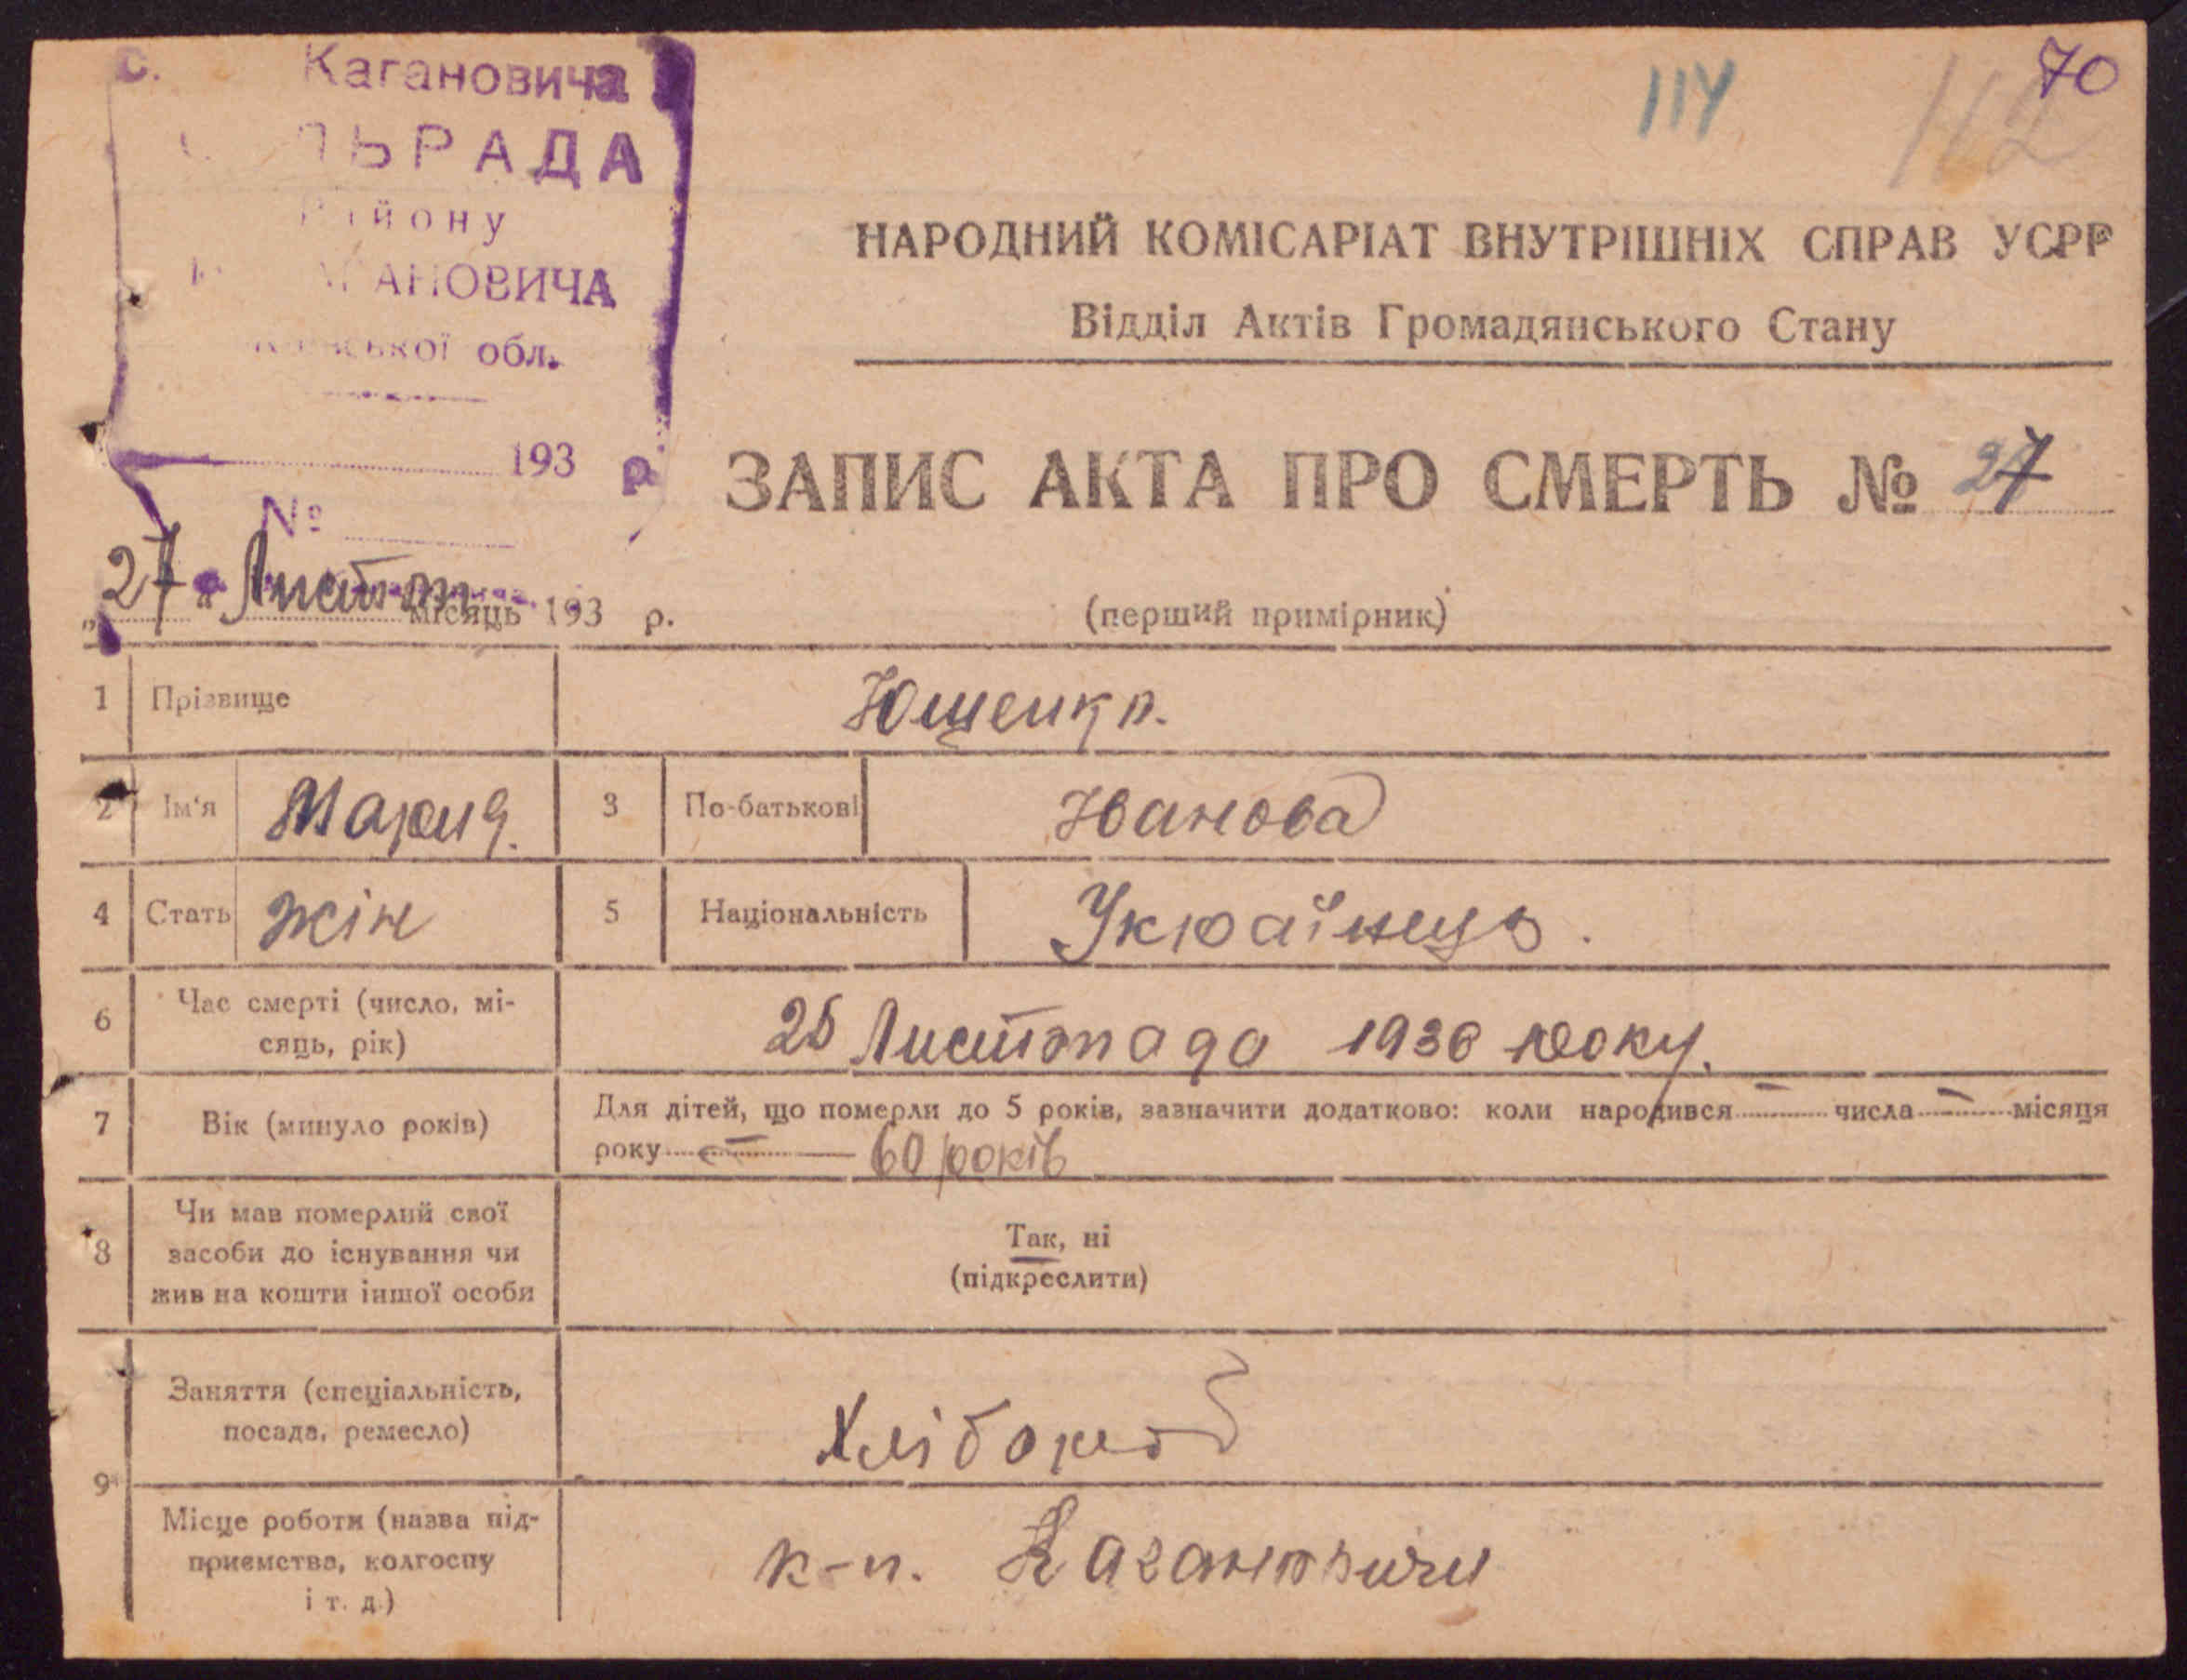 с. Кагановича
ЬРАДА
району
АНОВИЧА
ської обл.
193 р.
№
114
112
70
НАРОДНИЙ КОМІСАРІАТ ВНУТРІШНІХ СПРАВ УСРР
Відділ Актів Громадянського Стану
ЗАПИС АКТА ПРО СМЕРТЬ № 27
(перший примірник)
„27“ Листоп місяць 193 р.
1 Прізвище Ющенко.
2 Ім'я Мария. 3 По-батькові Иванова
4 Стать жін 5 Національність Українець.
6 Час смерті (число, мі-
сяць, рік) 25 Листопада 1936 року.
7 Вік (минуло років) Для дітей, що померли до 5 років, зазначити додатково: коли народився — числа — місяця
року — 60 років
8 Чи мав померлий свої
засоби до існування чи
жив на кошти іншої особи
Так, ні
(підкреслити)
9 Заняття (спеціальність,
посада, ремесло) Хлібороб
Місце роботи (назва під-
приємства, колгоспу
і т. д.)
Кагановичи